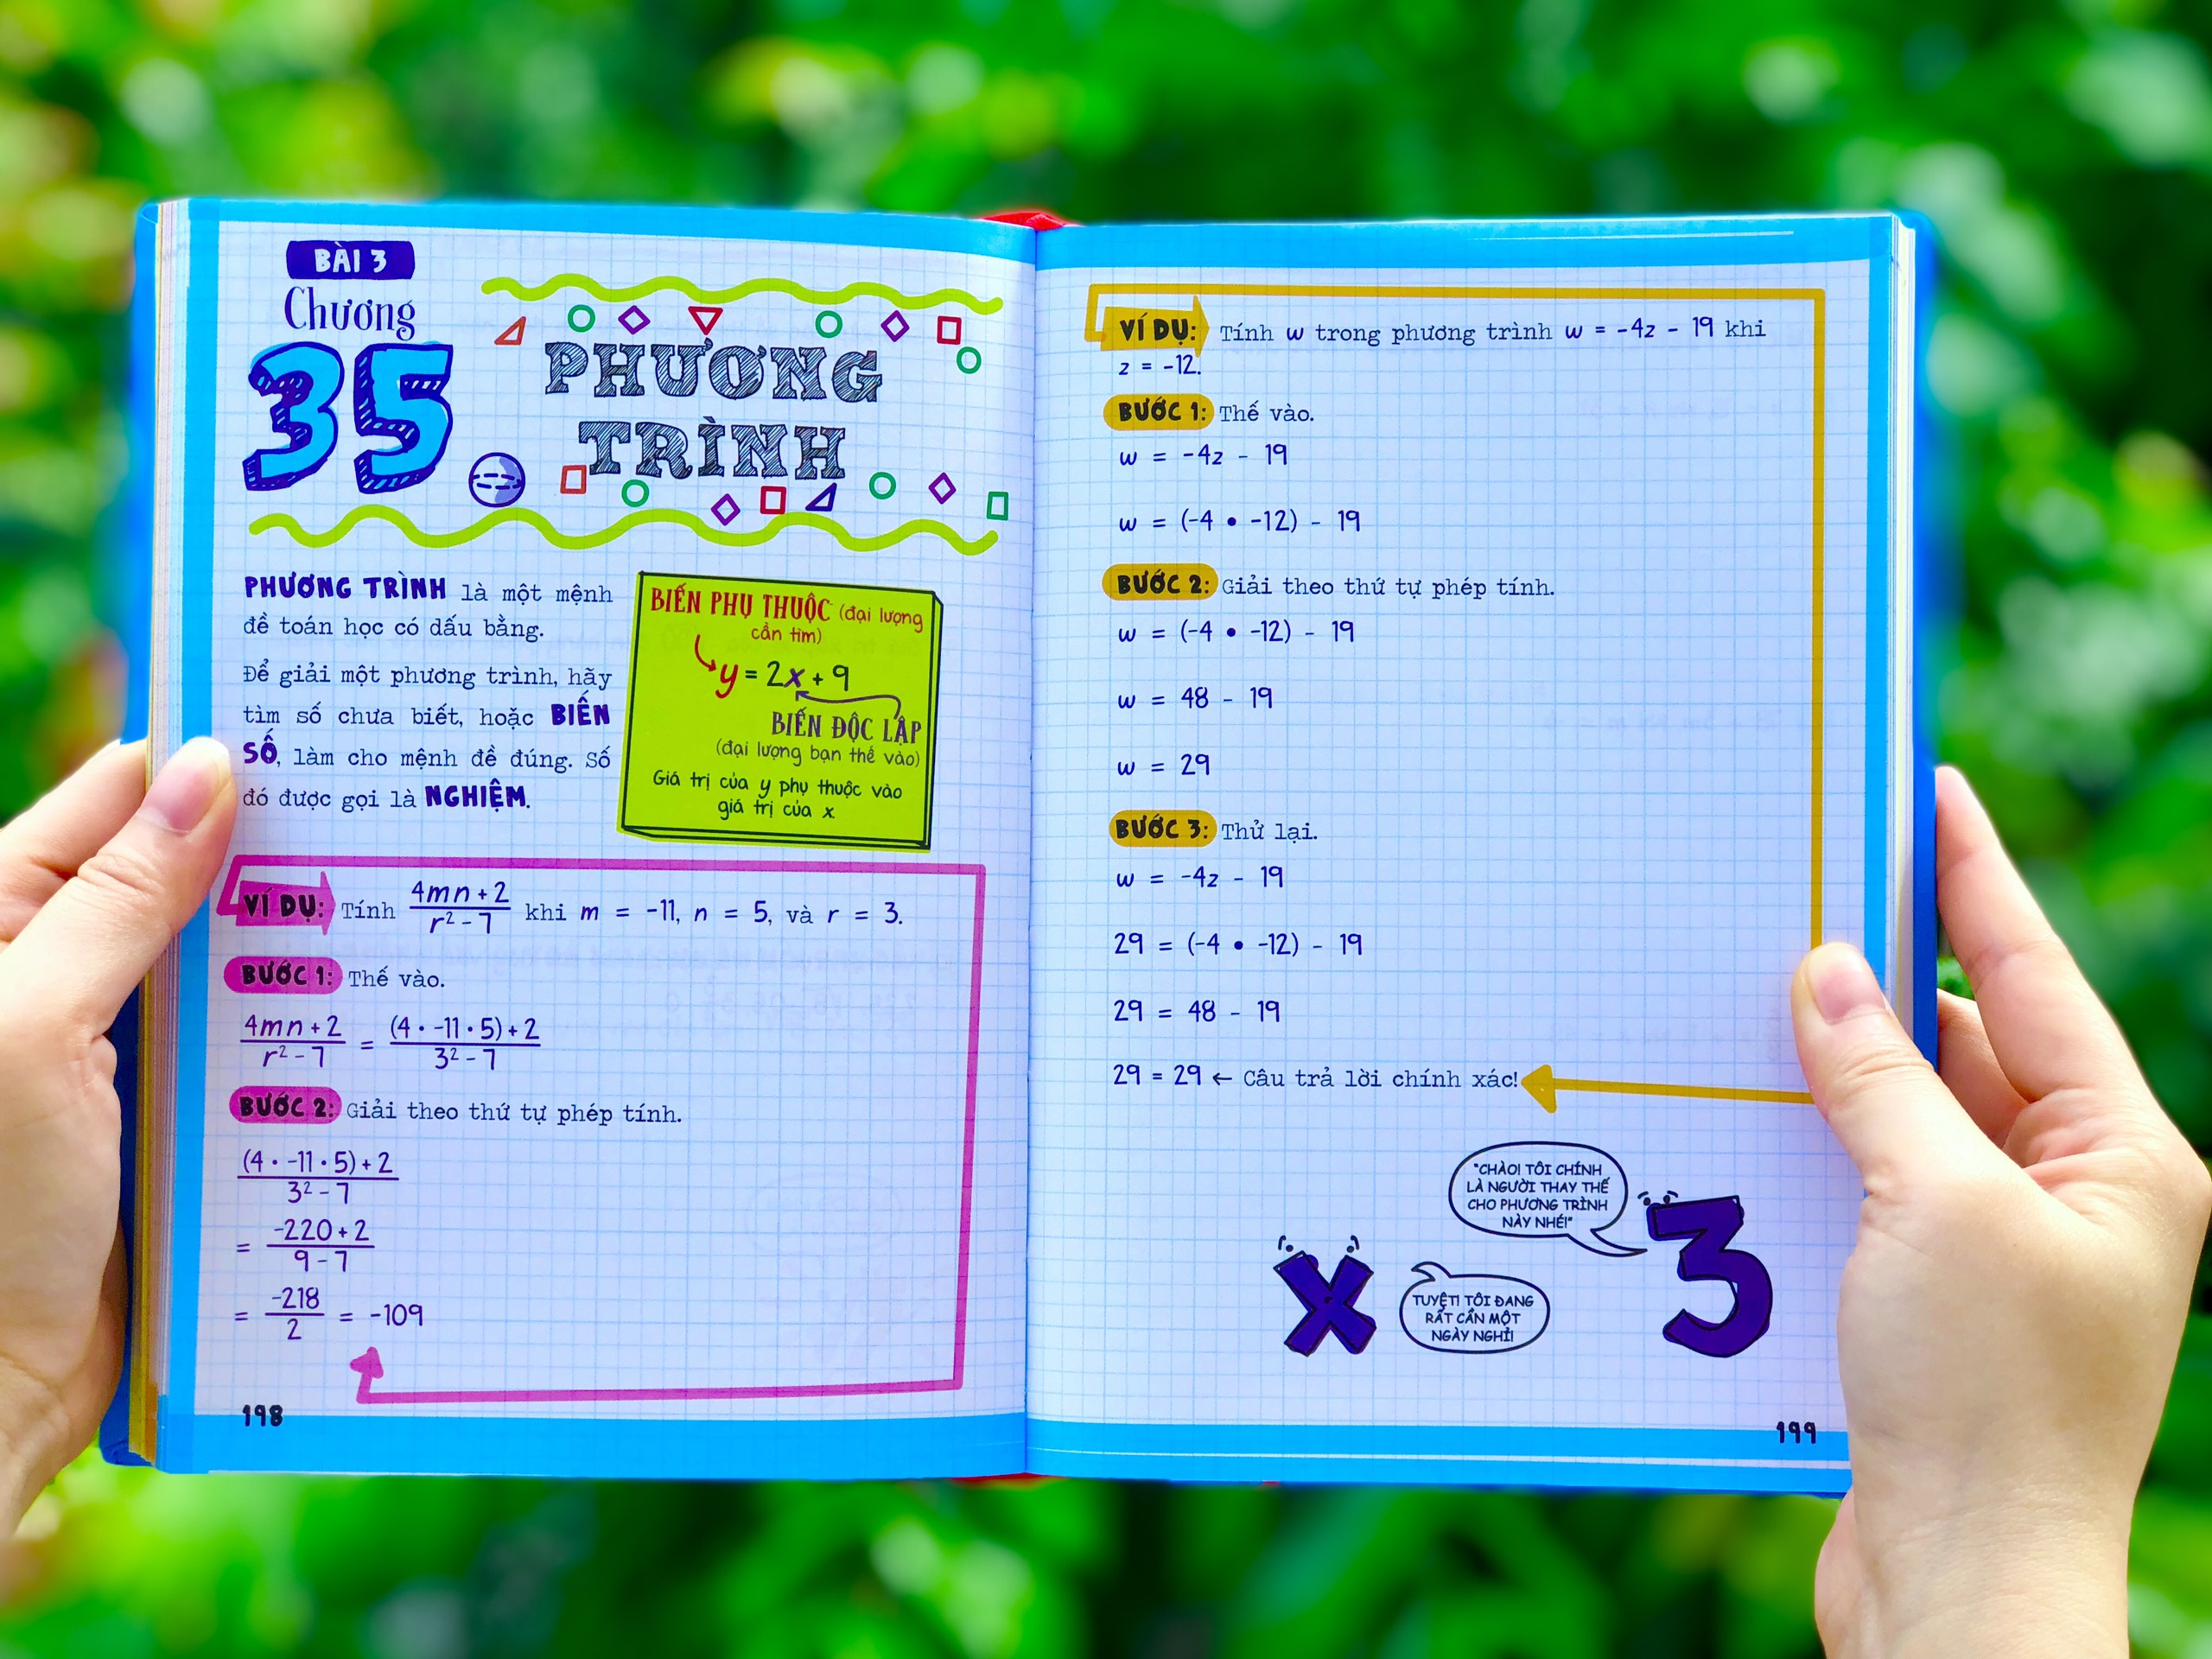 BÀI 3
Chương
35
PHƯƠNG
TRÌNH
PHƯƠNG TRÌNH là một mệnh
đề toán học có dấu bằng.
Để giải một phương trình, hãy
tìm số chưa biết, hoặc BIẾN
SỐ, làm cho mệnh đề đúng. Số
đó được gọi là NGHIỆM.
BIẾN PHỤ THUỘC (đại lượng
cần tìm)
y = 2x + 9
BIẾN ĐỘC LẬP
(đại lượng bạn thế vào)
Giá trị của y phụ thuộc vào
giá trị của x
VÍ DỤ: Tính (4mn + 2)/(r² - 7) khi m = -11, n = 5, và r = 3.
BƯỚC 1: Thế vào.
(4mn + 2)/(r² - 7) = ((4 · -11 · 5) + 2)/(3² - 7)
BƯỚC 2: Giải theo thứ tự phép tính.
((4 · -11 · 5) + 2)/(3² - 7)
= (-220 + 2)/(9 - 7)
= -218/2 = -109
198
VÍ DỤ: Tính w trong phương trình w = -4z - 19 khi
z = -12.
BƯỚC 1: Thế vào.
w = -4z - 19
w = (-4 • -12) - 19
BƯỚC 2: Giải theo thứ tự phép tính.
w = (-4 • -12) - 19
w = 48 - 19
w = 29
BƯỚC 3: Thử lại.
w = -4z - 19
29 = (-4 • -12) - 19
29 = 48 - 19
29 = 29 ← Câu trả lời chính xác!
"CHÀO! TÔI CHÍNH
LÀ NGƯỜI THAY THẾ
CHO PHƯƠNG TRÌNH
NÀY NHÉ!"
3
x
TUYỆT! TÔI ĐANG
RẤT CẦN MỘT
NGÀY NGHỈ!
199